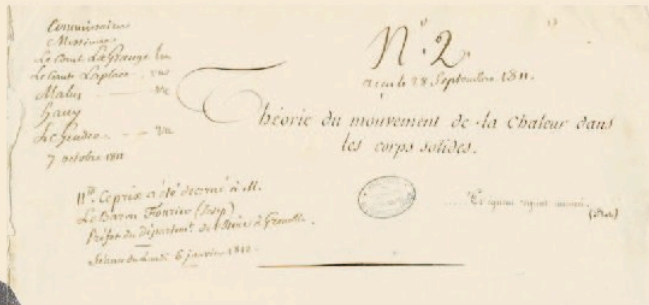 Commissaires
Messieurs
Le Comte LaGrange Vu
Le Comte Laplace — vu
Malus — Vu
Hauy
Le Gendre — Vu
7 octobre 1811
N.º 2.
reçu le 28 Septembre 1811.
Théorie du mouvement de la Chaleur dans
les corps solides.
Le prix a été décerné à M.
Le Baron Fourier (Josep)
Préfet du département de l'Isère à Grenoble.
Séance du Lundi 6 janvier 1812.
Et ignem regunt numeri.